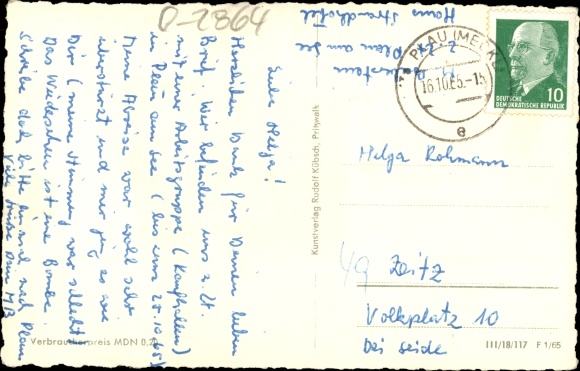 D-2864
Liebe Helga!
Herzlichen Dank für Deinen lieben
Brief. Wir befinden uns z. Zt.
mit einer Arbeitsgruppe (Kaufhallen)
in Plau am See (bis zum 25.10.65)
Meine Abreise war wohl sehr
überstürzt und mir ging es wie
Dir (meine Stimmung war schlecht)
Das Wiedersehen ist eine Bombe.
Schreibe doch bitte mal nach Plau
Viele Grüße Dein
z. Zt. Plau am See
Haus Strandhotel
PLAU (MECKL)
16.10.65.-15
e
DEUTSCHE
DEMOKRATISCHE REPUBLIK
10
Helga Rohmann
49 Zeitz
Volksplatz 10
bei Seide
Kunstverlag Rudolf Kübsch, Pritzwalk
Verbraucherpreis MDN 0,20
III/18/117 F 1/65